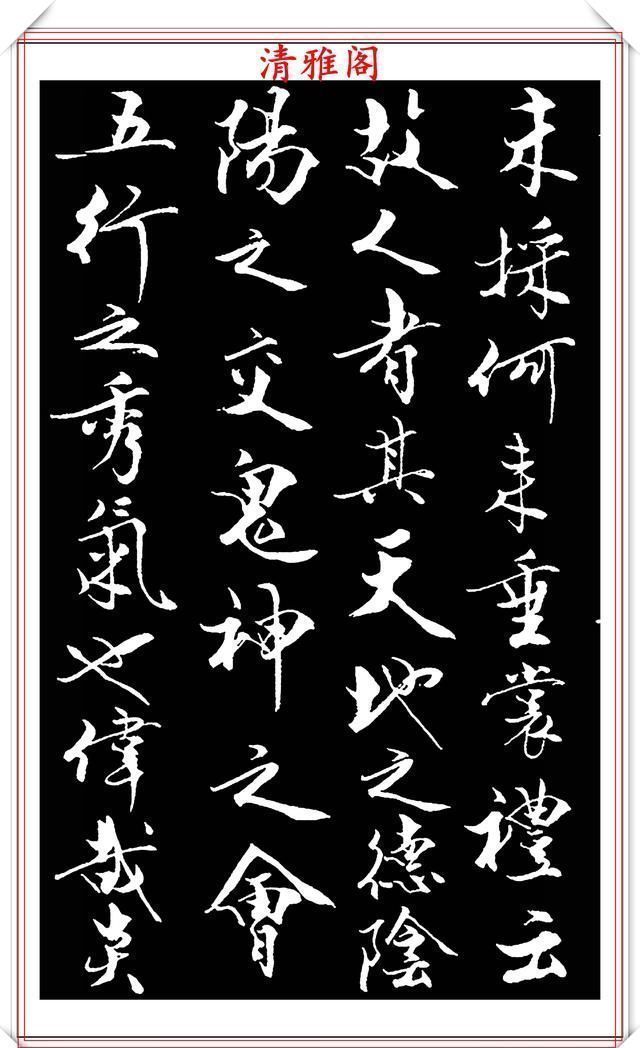 清雅阁
採何垂裳禮云
故人者其天地之德陰
陽之交鬼神之會
五行之秀氣也偉哉炎